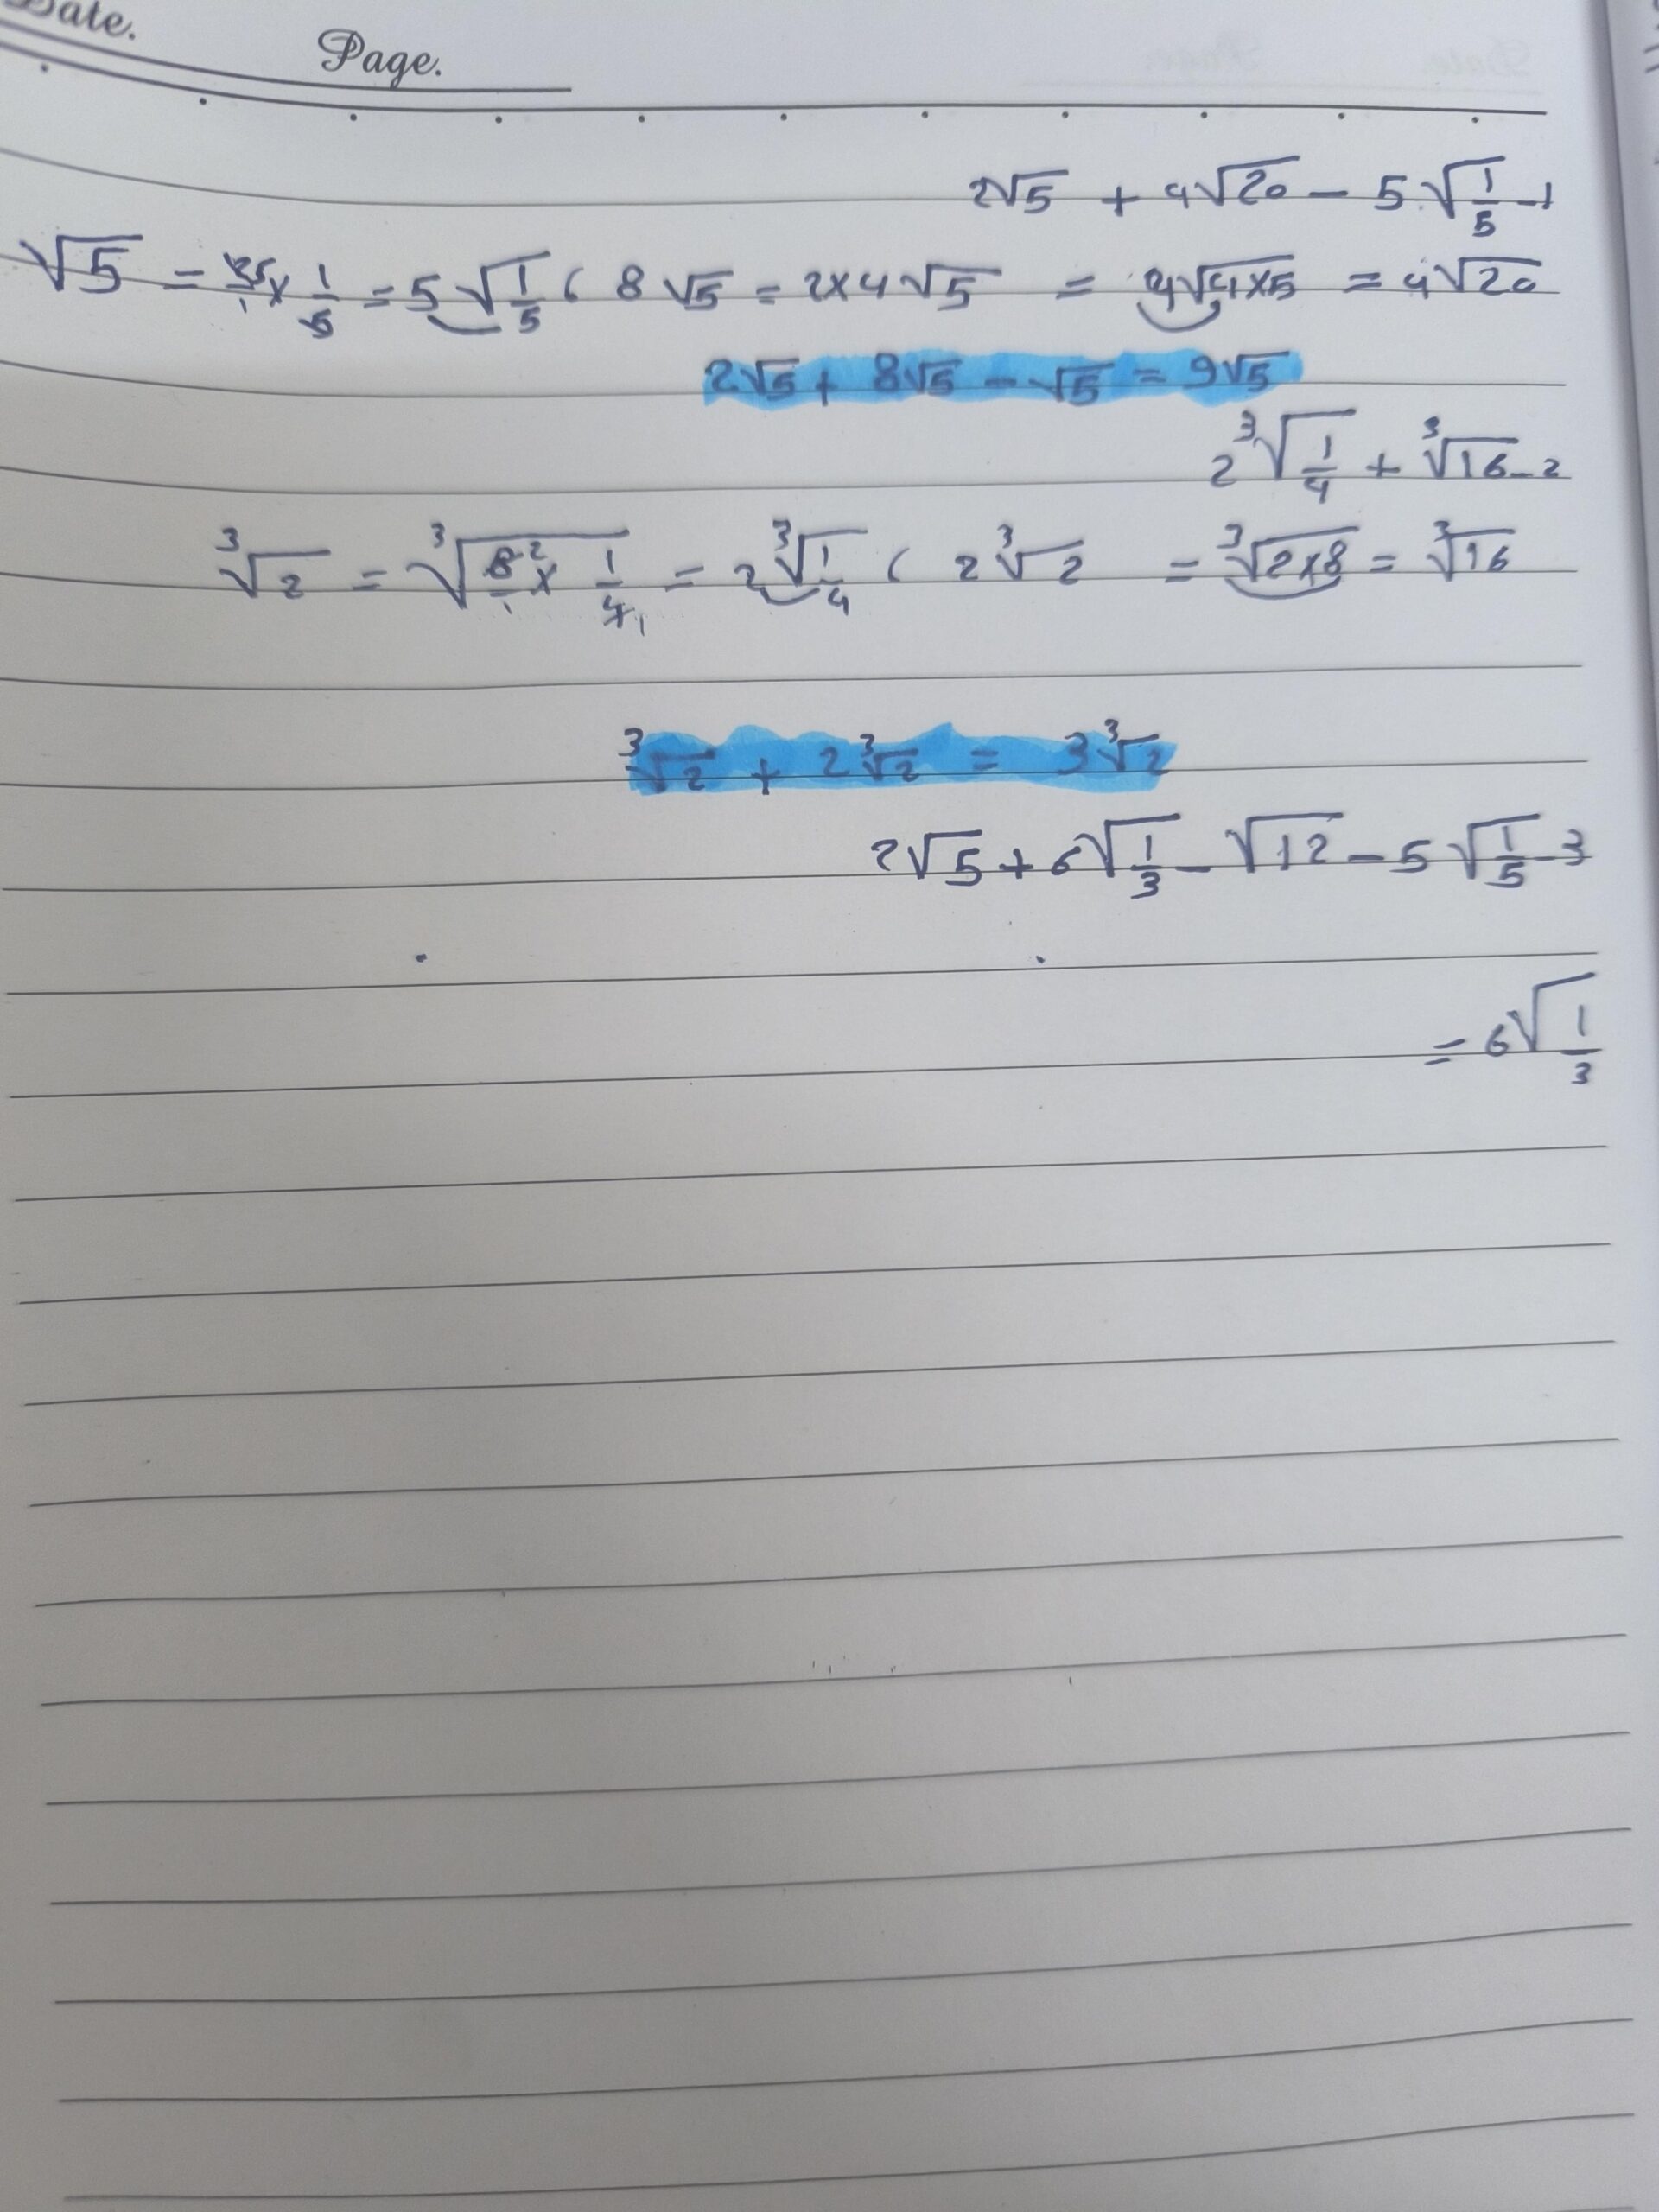 Date.
Page.
2√5 + 4√20 - 5√(1/5) -1
√5 = 25/1 × 1/5 = 5√(1/5) ( 8√5 = 2×4√5 = 4√(4×5) = 4√20
2√5 + 8√5 - √5 = 9√5
2∛(1/4) + ∛16 -2
∛2 = ∛(8²/1 × 1/4 1) = 2∛(1/4) ( 2∛2 = ∛(2×8) = ∛16
∛2 + 2∛2 = 3∛2
2√5 + 6√(1/3) - √12 - 5√(1/5) -3
= 6√(1/3)